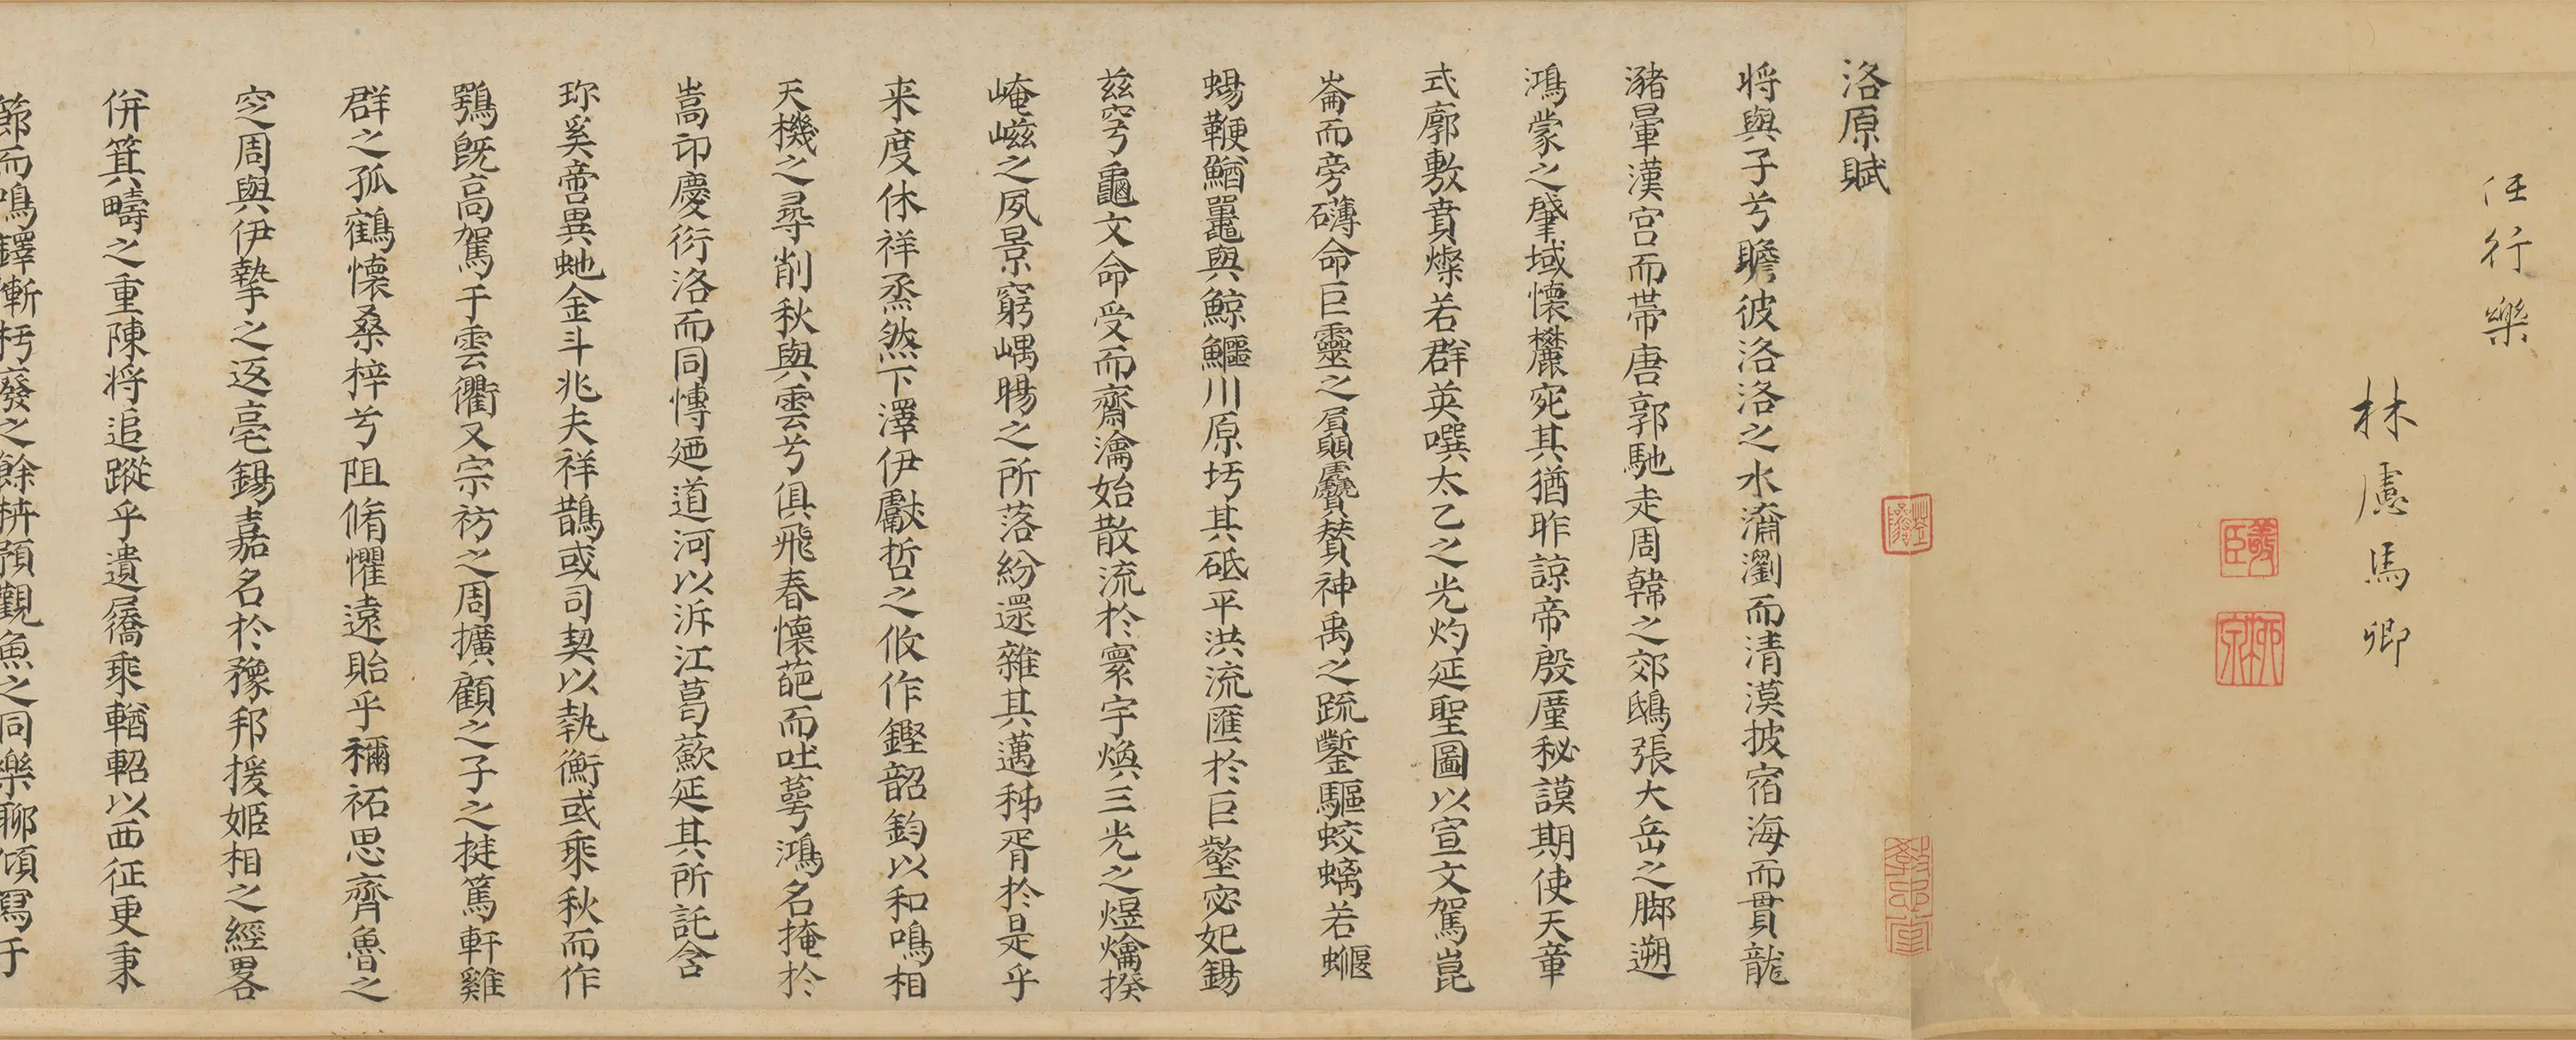 任行樂
林慮馬卿
洛原賦
将與子兮瞻彼洛洛之水瀟瀏而清漠披宿海而貫龍
瀦暈漢宮而帯唐郭馳走周韓之郊鴟張大岳之脚遡
鴻蒙之肇域懷麓宛其猶昨諒帝殷厪秘謨期使天章
式廓敷賁燦若群英噀太乙之光灼延聖圖以宣文駕崑
崙而旁礴命巨靈之贔屭贙賛神禹之疏鑿驅蛟螭若蝘
蜴鞭鰌鼉與鯨鱷川原圬其砥平洪流匯於巨壑宓妃錫
兹穹龜文命受而齋瀹始散流於寰宇煥三光之煜爚揆
崦嵫之夙景窮嵎暘之所落紛還雜其邁稊胥於是乎
来度休祥烝然下澤伊獻哲之攸作鏗韶鈞以和鳴相
天機之尋削秋與雲兮俱飛春懷葩而吐萼鴻名掩於
嵩卬慶衍洛而同慱廼道河以泝江蔿藃延其所託含
珎奚啻異虵金斗兆夫祥鵲或司契以執衡或乘秋而作
鶚既高駕于雲衢又宗祊之周擴顧之子之挺篤軒雞
群之孤鶴懷桑梓兮阻脩懼遠貽乎禰祏思齊魯之
空周與伊摯之返亳錫嘉名於豫邦援姬相之經畧
併箕疇之重陳将追蹤乎遺屩乘輶軺以西征更秉
節而鳴鐸慚朽廢之餘枿預觀魚之同樂聊傾寫于